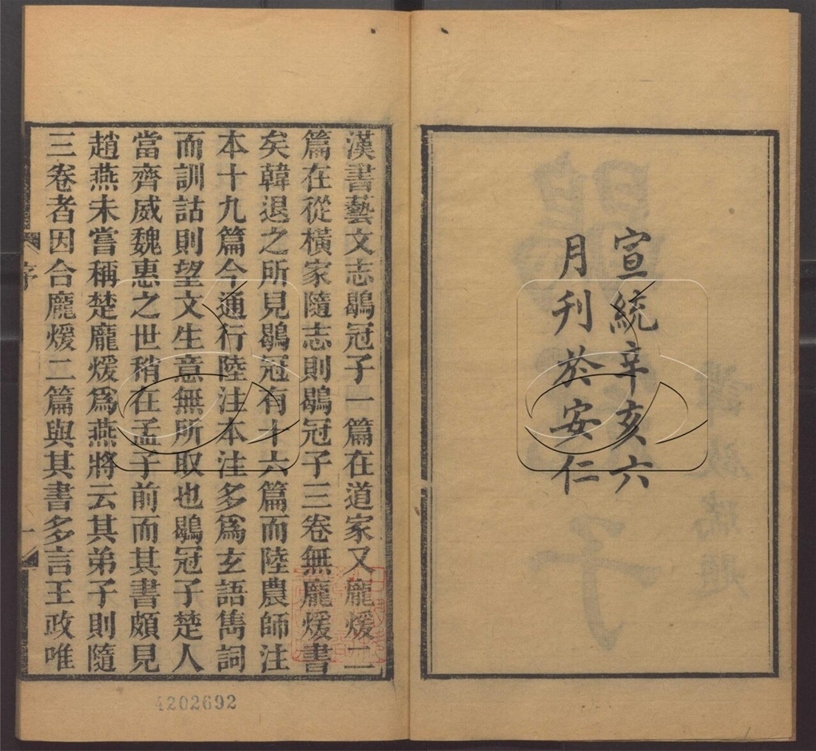 宣統辛亥六
月刊於安仁
漢書藝文志鶡冠子一篇在道家又龐煖二
篇在從橫家隨志則鶡冠子三卷無龐煖書
矣韓退之所見鶡冠有十六篇而陸農師注
本十九篇今通行陸注本注多爲玄語雋詞
而訓詁則望文生意無所取也鶡冠子楚人
當齊威魏惠之世稍在孟子前而其書頗見
趙燕未嘗稱楚龐煖爲燕將云其弟子則隨
三卷者因合龐煖二篇與其書多言王政唯
序
一
4202692